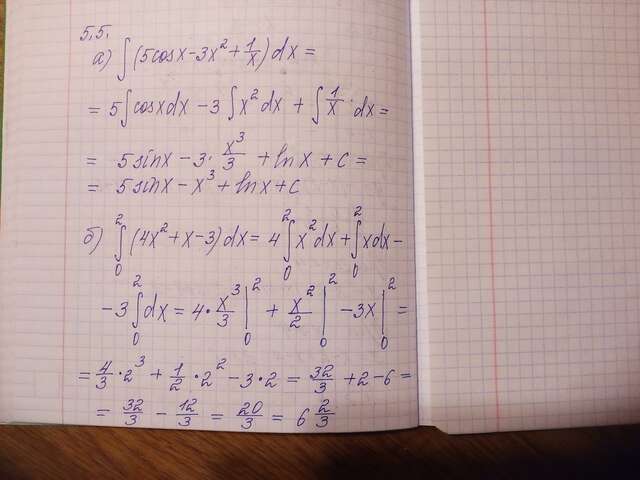 5.5.
а) ∫(5cosx-3x²+1/x)dx=
= 5∫cosxdx -3∫x²dx + ∫1/x·dx=
= 5sinx-3·x³/3+lnx+c=
= 5sinx-x³+lnx+c
б) ∫₀²(4x²+x-3)dx=4∫₀²x²dx+∫₀²xdx-
-3∫₀²dx=4·x³/3|₀²+x²/2|₀²-3x|₀²=
=4/3·2³+1/2·2²-3·2=32/3+2-6=
=32/3-12/3=20/3=6 2/3